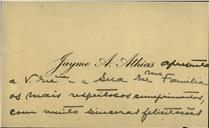 Jayme A. Athias apresenta
a V. Ex.ma e a Sua Ex.ma Familia
os mais respeitosos cumprimentos,
com muito sinceras felicitações